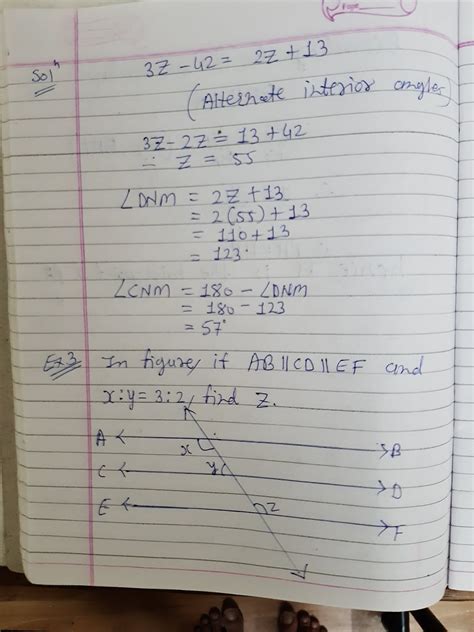 Page
Solⁿ 3Z - 42 = 2Z + 13
(Alternate interior angles)
3Z - 2Z = 13 + 42
∴ Z = 55
∠DNM = 2Z + 13
= 2(55) + 13
= 110 + 13
= 123°
∠CNM = 180 - ∠DNM
= 180 - 123
= 57°
Ex3 In figure, if AB||CD||EF and
x:y = 3:2, find Z.
A B
x
C y D
E Z F